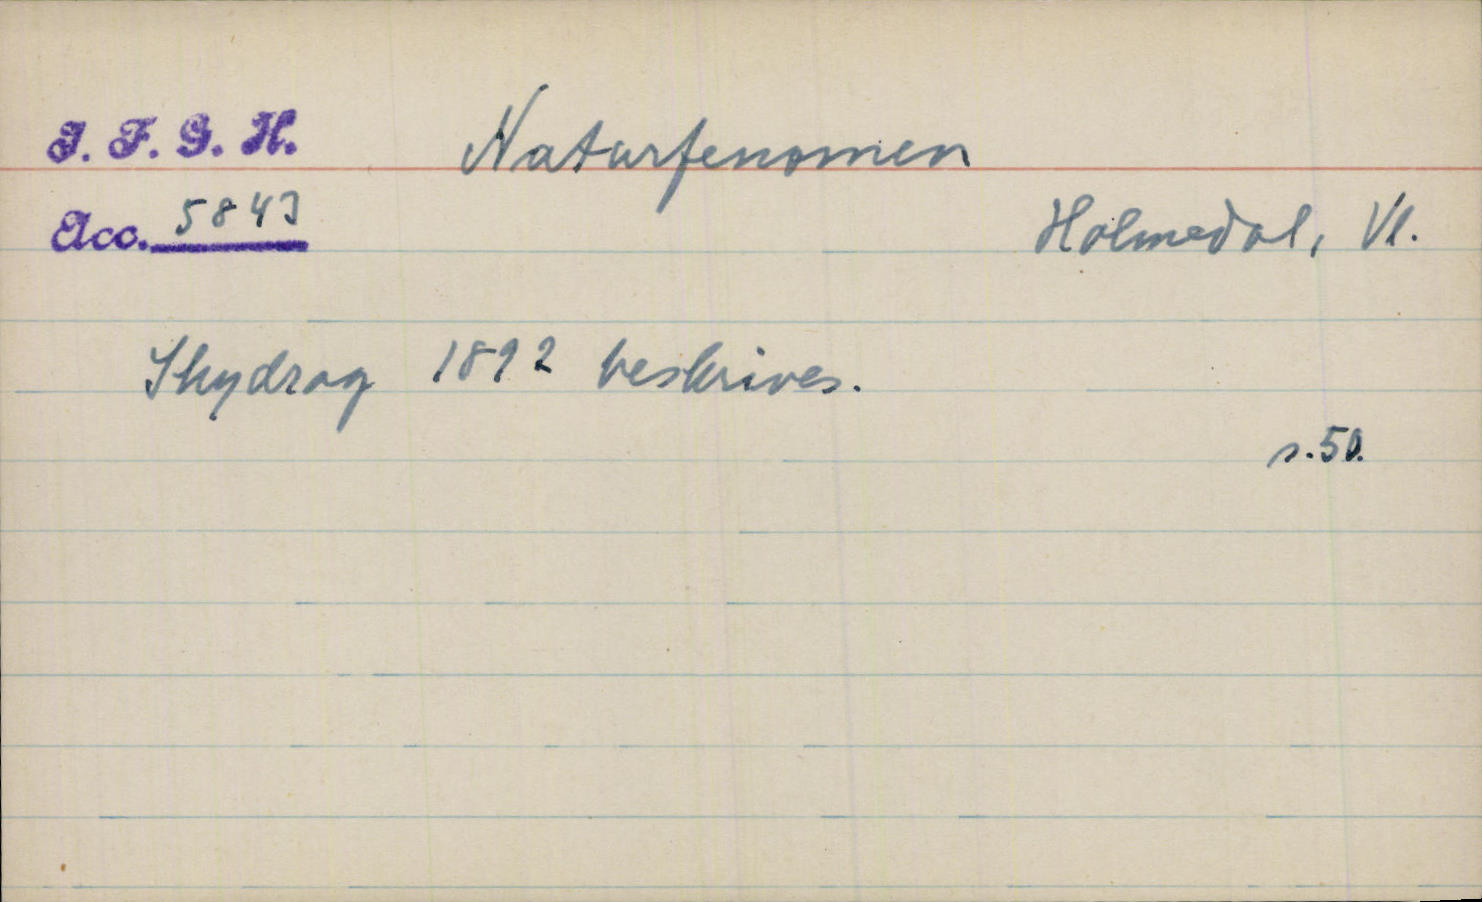 I. F. G. H.
Naturfenomen
Acc. 5843
Holmedal, Vl.
Skydrag 1892 beskrives.
s. 50.